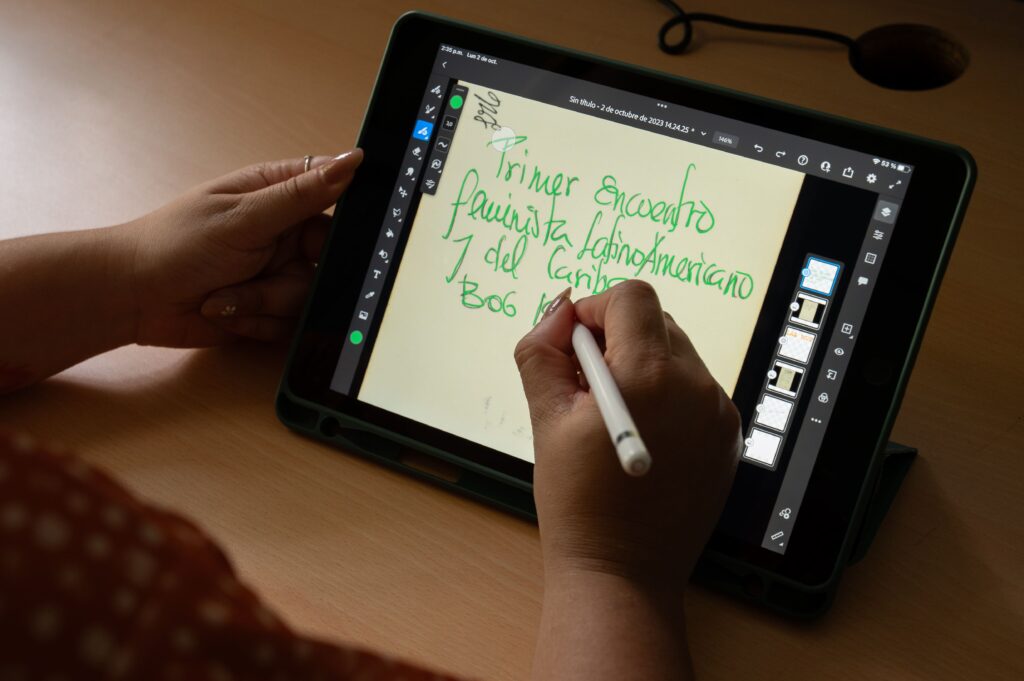 2:35 p.m. Lun 2 de oct.
53 %
Sin título - 2 de octubre de 2023 14.24.25 *
146%
10
T
Primer Encuentro
feminista LatinoAmericano
y del Caribe
BOG